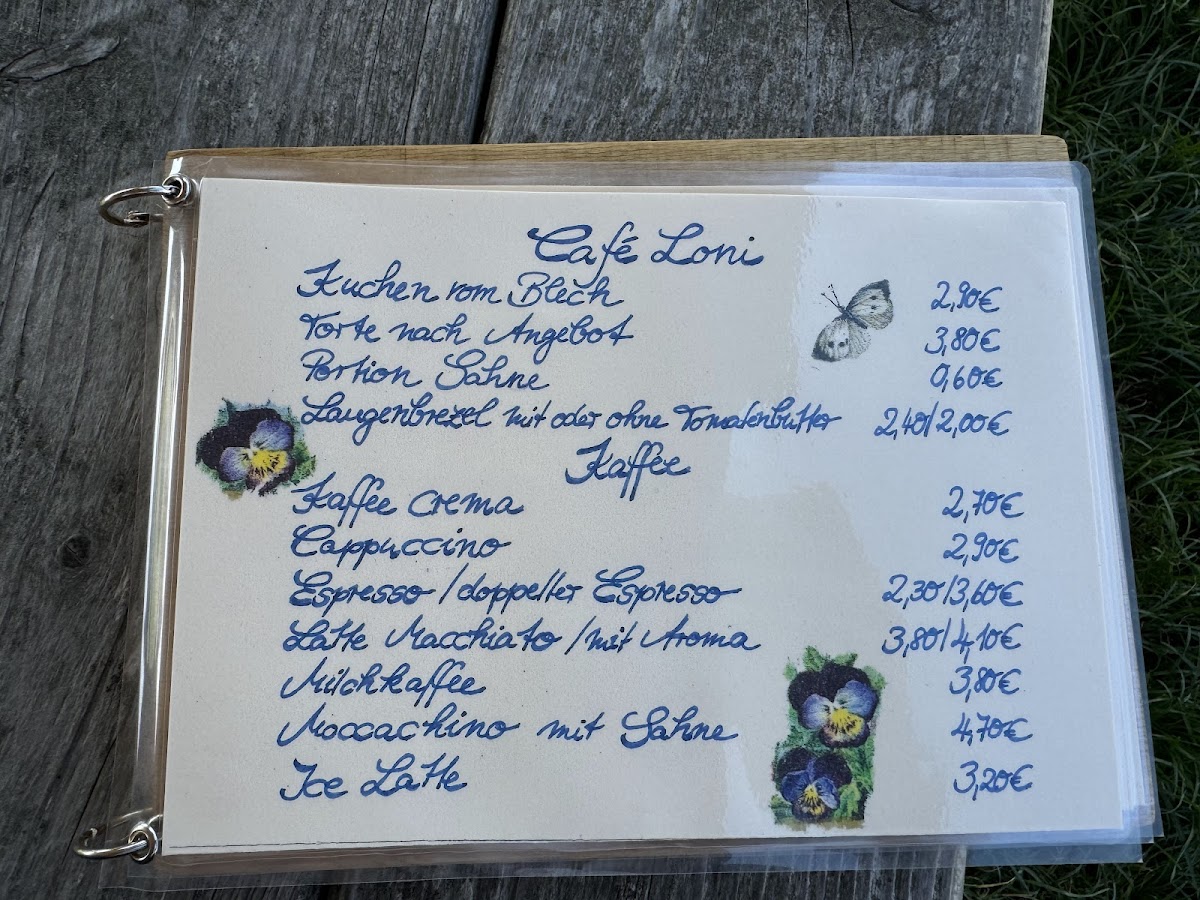 Café Loni
Kuchen vom Blech 2,90€
Torte nach Angebot 3,80€
Portion Sahne 0,60€
Laugenbrezel mit oder ohne Tomatenbutter 2,40/2,00€
Kaffee
Kaffee crema 2,70€
Cappuccino 2,90€
Espresso / doppelter Espresso 2,30/3,60€
Latte Macchiato / mit Aroma 3,80/4,10€
Milchkaffee 3,80€
Moccachino mit Sahne 4,70€
Ice Latte 3,20€